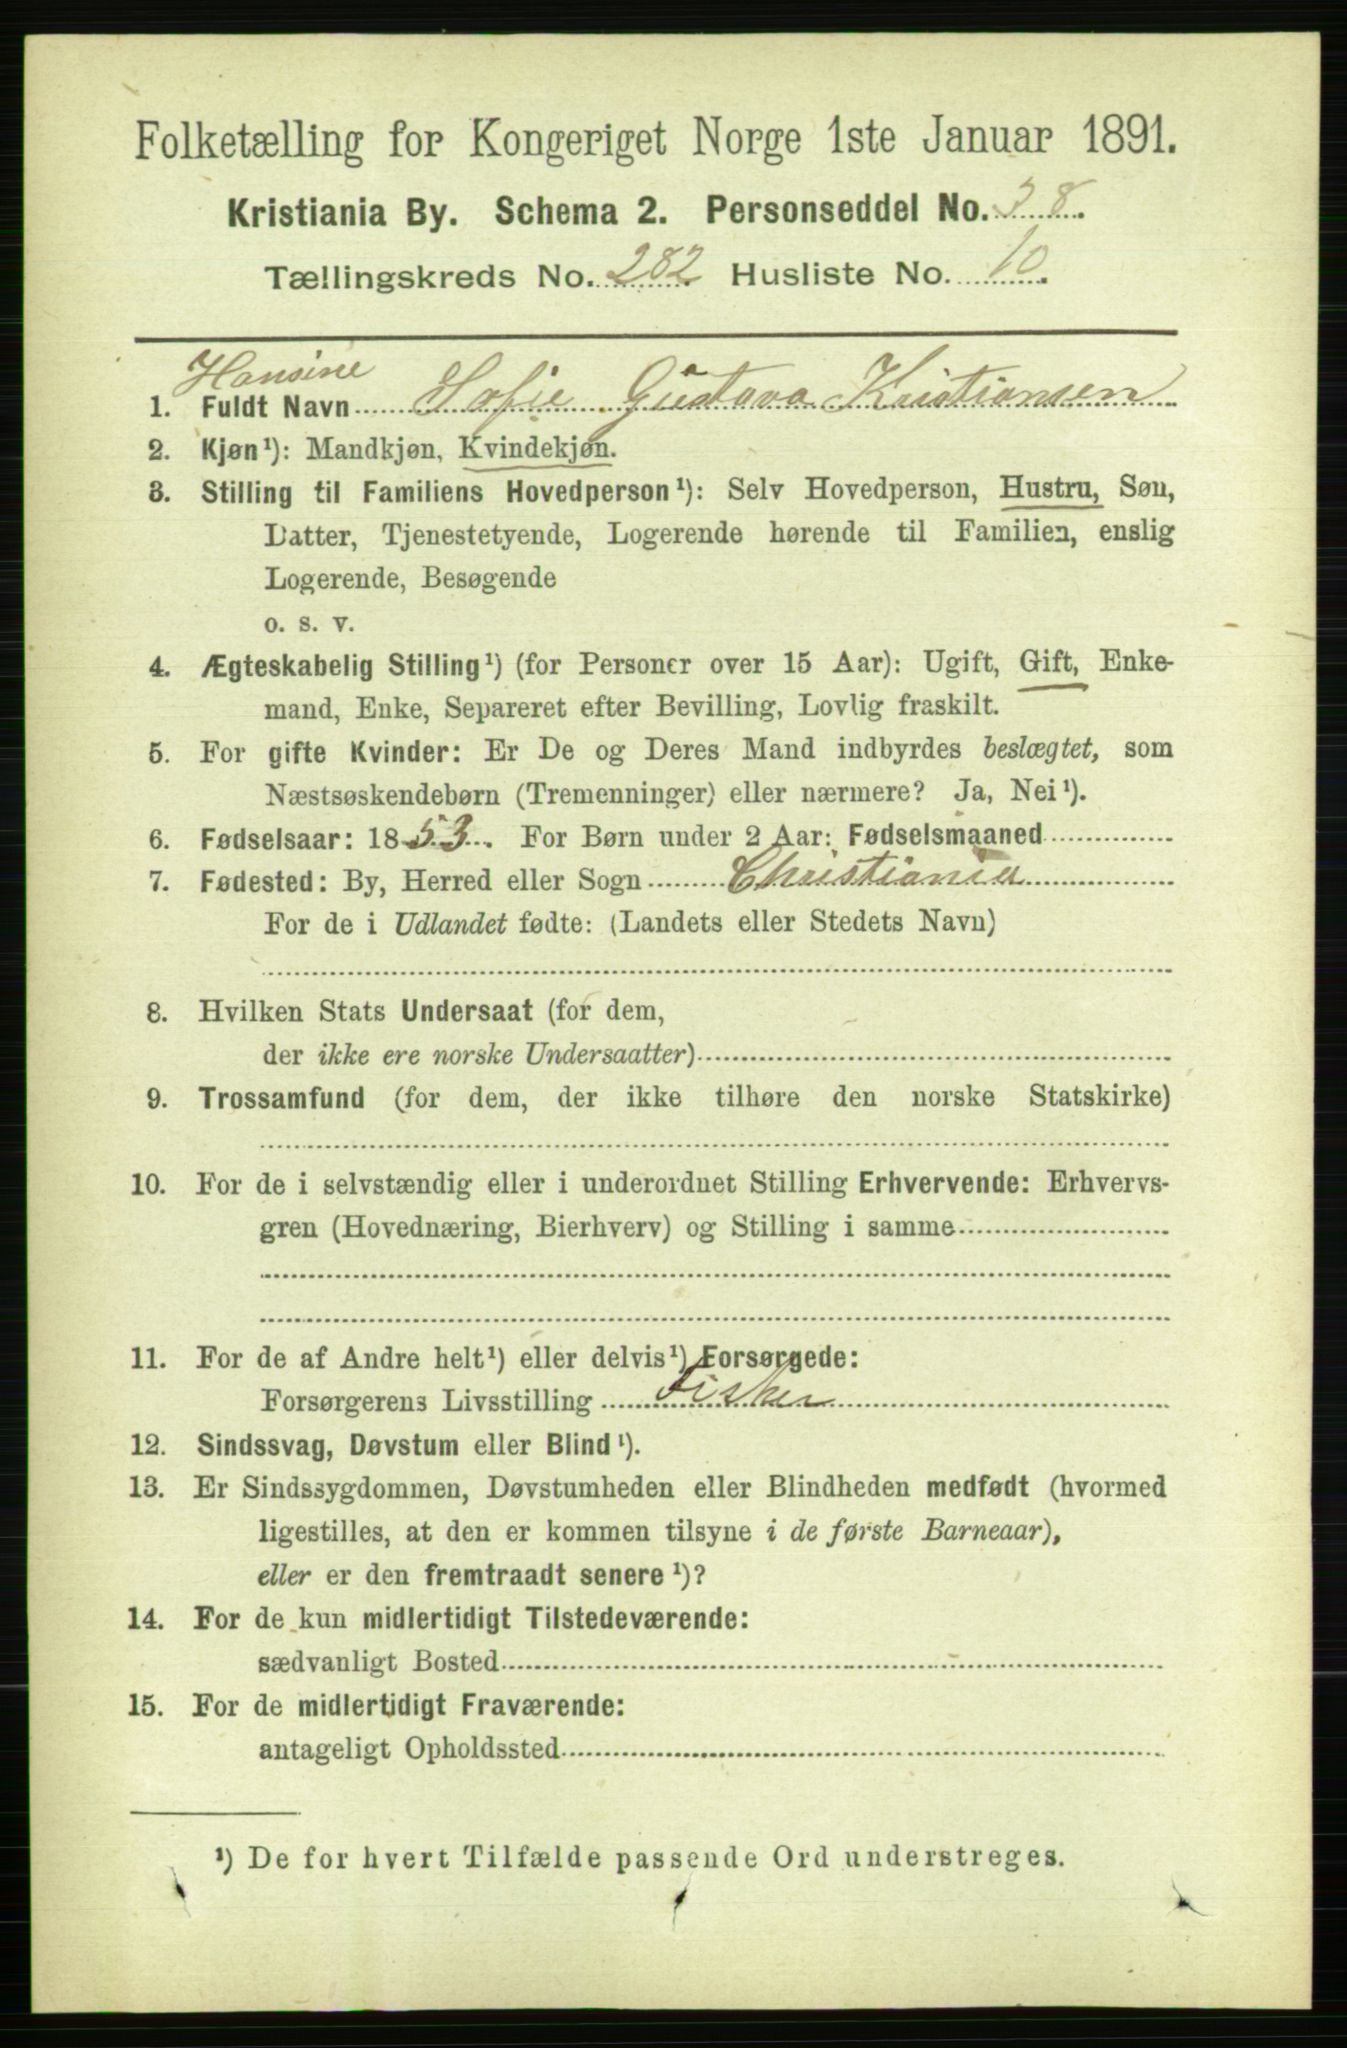 Folketælling for Kongeriget Norge 1ste Januar 1891.
Kristiania By. Schema 2. Personseddel No. 38.
Tællingskreds No. 282. Husliste No. 10.
Hansine
1. Fuldt Navn Sofie Gustava Kristiansen
2. Kjøn¹): Mandkjøn, Kvindekjøn.
3. Stilling til Familiens Hovedperson¹): Selv Hovedperson, Hustru, Søn,
Datter, Tjenestetyende, Logerende hørende til Familien, enslig
Logerende, Besøgende
o. s. v.
4. Ægteskabelig Stilling¹) (for Personer over 15 Aar): Ugift, Gift, Enke-
mand, Enke, Separeret efter Bevilling, Lovlig fraskilt.
5. For gifte Kvinder: Er De og Deres Mand indbyrdes beslægtet, som
Næstsøskendebørn (Tremenninger) eller nærmere? Ja, Nei¹).
6. Fødselsaar: 1853. For Børn under 2 Aar: Fødselsmaaned
7. Fødested: By, Herred eller Sogn Christiania
For de i Udlandet fødte: (Landets eller Stedets Navn)
8. Hvilken Stats Undersaat (for dem,
der ikke ere norske Undersaatter)
9. Trossamfund (for dem, der ikke tilhøre den norske Statskirke)
10. For de i selvstændig eller i underordnet Stilling Erhvervende: Erhvervs-
gren (Hovednæring, Bierhverv) og Stilling i samme
11. For de af Andre helt¹) eller delvis¹) Forsørgede:
Forsørgerens Livsstilling Fisker
12. Sindssvag, Døvstum eller Blind¹).
13. Er Sindssygdommen, Døvstumheden eller Blindheden medfødt (hvormed
ligestilles, at den er kommen tilsyne i de første Barneaar),
eller er den fremtraadt senere¹)?
14. For de kun midlertidigt Tilstedeværende:
sædvanligt Bosted
15. For de midlertidigt Fraværende:
antageligt Opholdssted
¹) De for hvert Tilfælde passende Ord understreges.